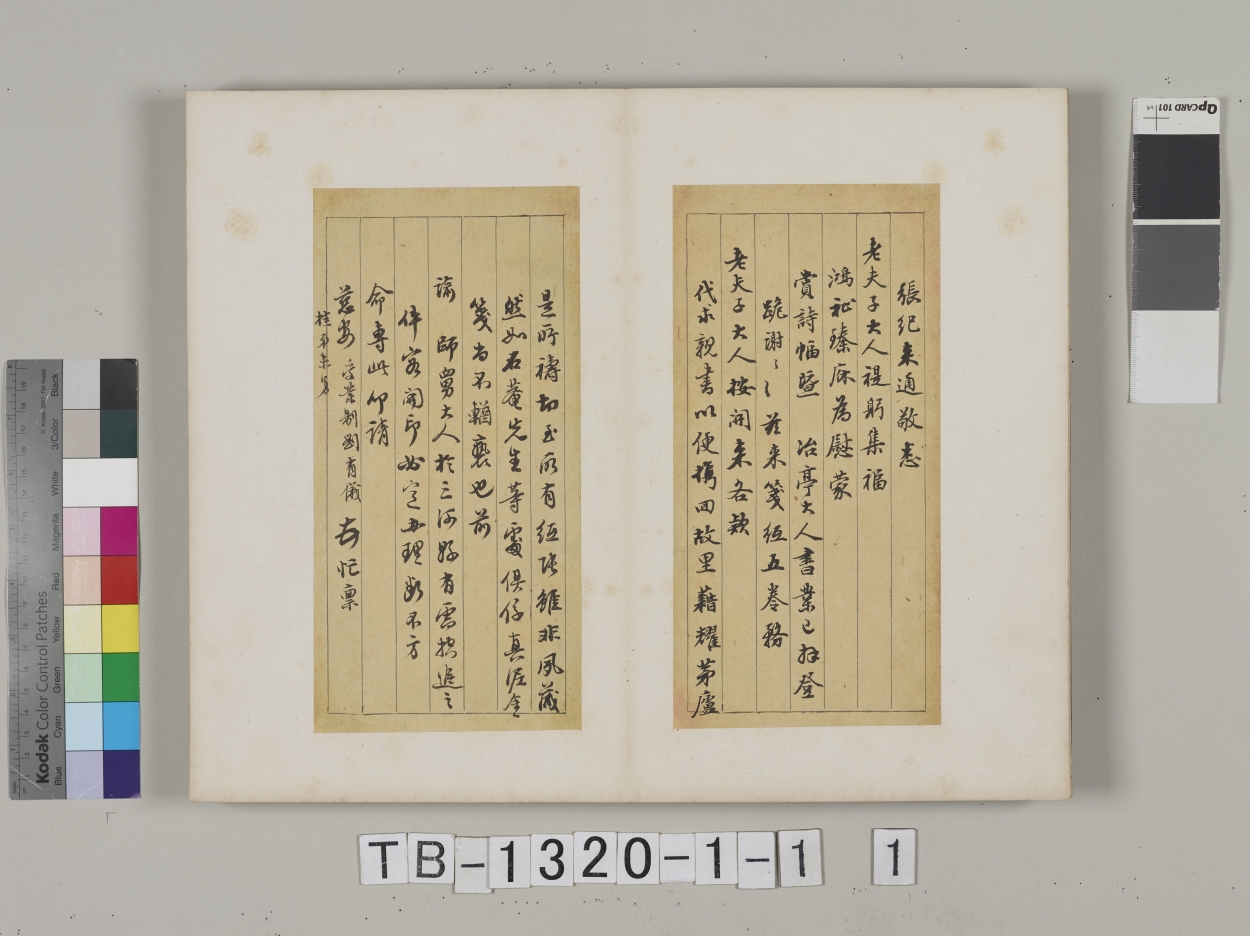 張紀來通敬悉
老夫子大人禔躬集福
鴻祉臻庥為慰蒙
賞詩幅暨 冶亭大人書業已拜登
跪謝〻〻茲來箋紙五卷務
老夫子大人按開來各款
代求親書以便攜回故里藉耀茅廬
是所禱切至所有紙張雖非夙藏
然如石菴先生等處俱仔真泥金
箋尚不輶褻也前
諭 師舅大人於三河縣有需拯追之
件客開印妥定辦理斷不方
命專此叩請
慈安 受業制劉有儀 去忙稟
桂
TB-1320-1-1 1
QPCARD 101 v4
Kodak Color Control Patches
Blue Cyan Green Yellow Red Magenta White 3/Color Black